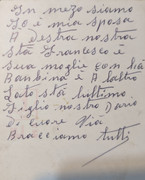 In mezo siamo
Io è mia sposa
A destra nostra
stá Francesco è
Sua moglie con la
Bambina è A laltro
Lato stá lultimo
Figlio nostro Dario
Di cuore Vià
Bracciamo tutti